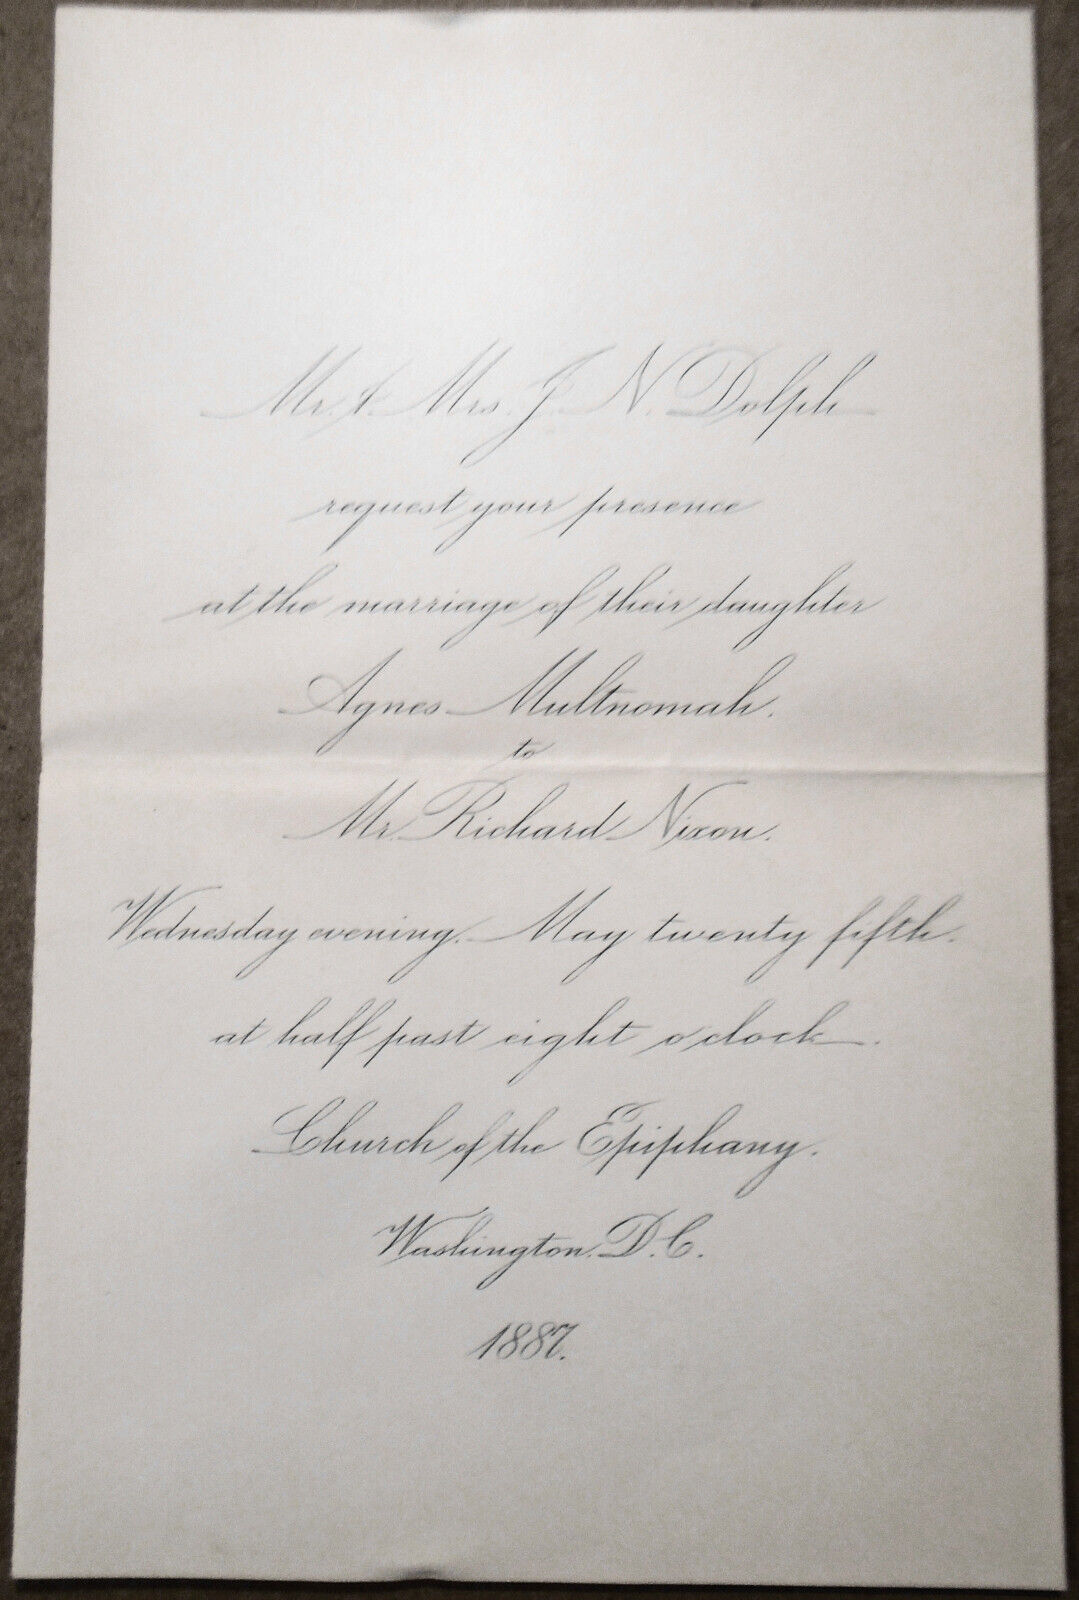 Mr. & Mrs. J. N. Dolph
request your presence
at the marriage of their daughter
Agnes Multnomah.
to
Mr. Richard Nixon.
Wednesday evening. May twenty fifth.
at half past eight o'clock.
Church of the Epiphany.
Washington. D.C.
1887.